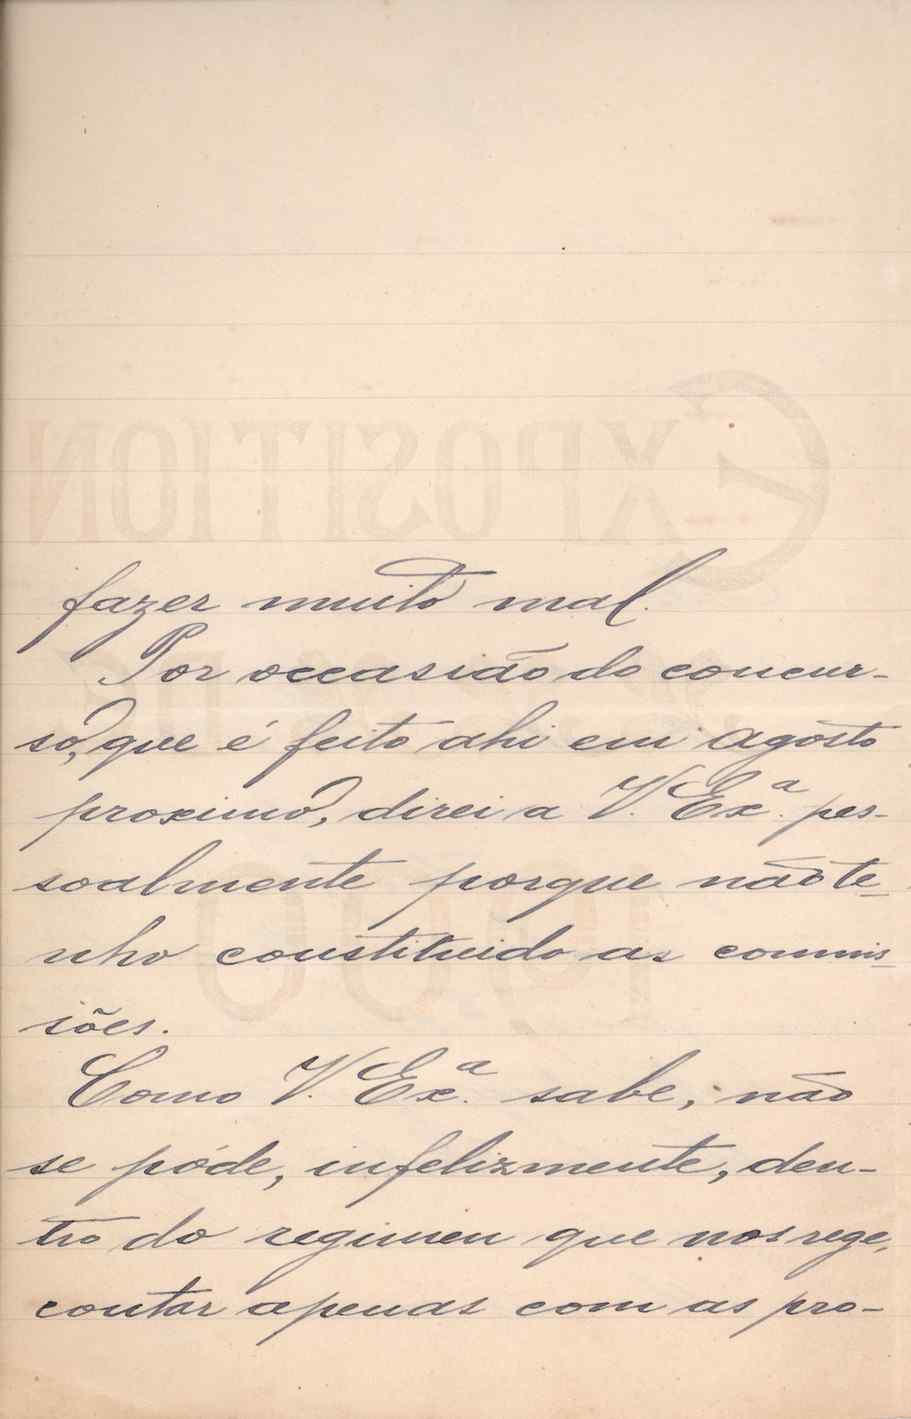 EXPOSITION
DE
1900
fazer muito mal.
Por occasião do concur-
so, que é feito ahi em Agosto
proximo, direi a V. Exª. pes-
soalmente porque não te-
nho constituido as commis-
sões.
Como V. Exª. sabe, não
se póde, infelizmente, den-
tro do regimen que nos rege,
contar apenas com as pro-